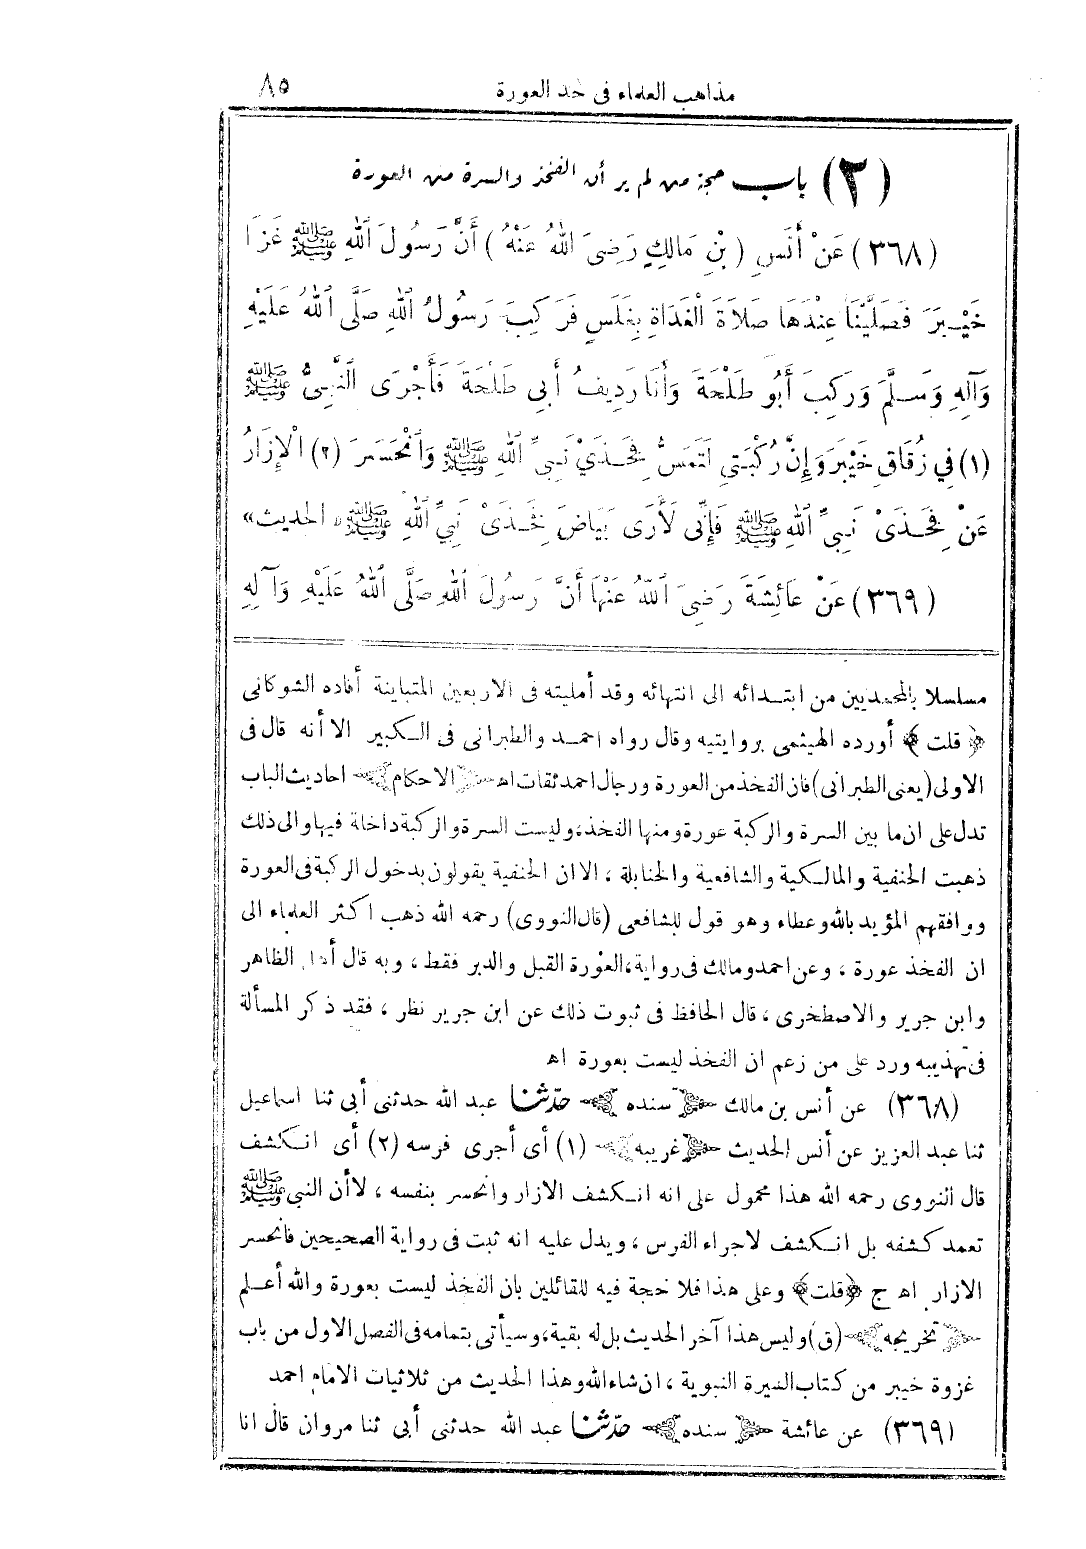 مذاهب العلماء فى حد العورة ٨٥
(٣) باب حجة من لم ير أن الفخذ والسرة من العورة
(٣٦٨) عَنْ أَنَسِ (بْنِ مَالِكٍ رَضِىَ اللهُ عَنْهُ) أَنَّ رَسُولَ اللهِ ﷺ غَزَا
خَيْبَرَ فَصَلَّيْنَا عِنْدَهَا صَلَاةَ الْغَدَاةِ بِغَلَسٍ فَرَكِبَ رَسُولُ اللهِ صَلَّى اللهُ عَلَيْهِ
وَآلِهِ وَسَلَّمَ وَرَكِبَ أَبُو طَلْحَةَ وَأَنَا رَدِيفُ أَبِى طَلْحَةَ فَأَجْرَى النَّبِىُّ ﷺ
(١) فِي زُقَاقِ خَيْبَرَ وَإِنَّ رُكْبَتِى لَتَمَسُّ فَخِذَيْ نَبِىِّ اللهِ ﷺ وَانْحَسَرَ (٢) الْإِزَارُ
عَنْ فَخِذَىْ نَبِىِّ اللهِ ﷺ فَإِنِّى لَأَرَى بَيَاضَ فَخِذَىْ نَبِيِّ اللهِ ﷺ «الحديث»
(٣٦٩) عَنْ عَائِشَةَ رَضِىَ اللهُ عَنْهَا أَنَّ رَسُولَ اللهِ صَلَّى اللهُ عَلَيْهِ وَآلِهِ
مسلسلا بالمحمديين من ابتدائه الى انتهائه وقد أمليته فى الاربعين المتباينة أفاده الشوكانى
﴿قلت﴾ أورده الهيثمى بروايتيه وقال رواه احمد والطبرانى فى الكبير الا أنه قال فى
الاولى (يعنى الطبرانى) فان الفخذ من العورة ورجال احمد ثقات اهـ ﴿الاحكام﴾ احاديث الباب
تدل على ان ما بين السرة والركبة عورة ومنها الفخذ، وليست السرة والركبة داخلة فيها والى ذلك
ذهبت الحنفية والمالكية والشافعية والحنابلة ، الا ان الحنفية يقولون بدخول الركبة فى العورة
ووافقهم المؤيد بالله وعطاء وهو قول للشافعى (قال النووى) رحمه الله ذهب اكثر العلماء الى
ان الفخذ عورة ، وعن احمد ومالك فى رواية، العورة القبل والدبر فقط ، وبه قال أهل الظاهر
وابن جرير والاصطخرى ، قال الحافظ فى ثبوت ذلك عن ابن جرير نظر ، فقد ذكر المسألة
فى تهذيبه ورد على من زعم ان الفخذ ليست بعورة اهـ
(٣٦٨) عن أنس بن مالك ﴿سنده﴾ حدّثنا عبد الله حدثنى أبى ثنا اسماعيل
ثنا عبد العزيز عن أنس الحديث ﴿غريبه﴾ (١) أى أجرى فرسه (٢) أى انكشف
قال النووى رحمه الله هذا محمول على انه انكشف الازار وانحسر بنفسه ، لا أن النبى ﷺ
تعمد كشفه بل انكشف لاجراء الفرس ، ويدل عليه انه ثبت فى رواية الصحيحين فانحسر
الازار اهـ ج ﴿قلت﴾ وعلى هذا فلا حجة فيه للقائلين بان الفخذ ليست بعورة والله أعلم
﴿تخريجه﴾ (ق) وليس هذا آخر الحديث بل له بقية، وسيأتى بتمامه فى الفصل الاول من باب
غزوة خيبر من كتاب السيرة النبوية ، ان شاء الله وهذا الحديث من ثلاثيات الامام احمد
(٣٦٩) عن عائشة ﴿سنده﴾ حدّثنا عبد الله حدثنى أبى ثنا مروان قال انا